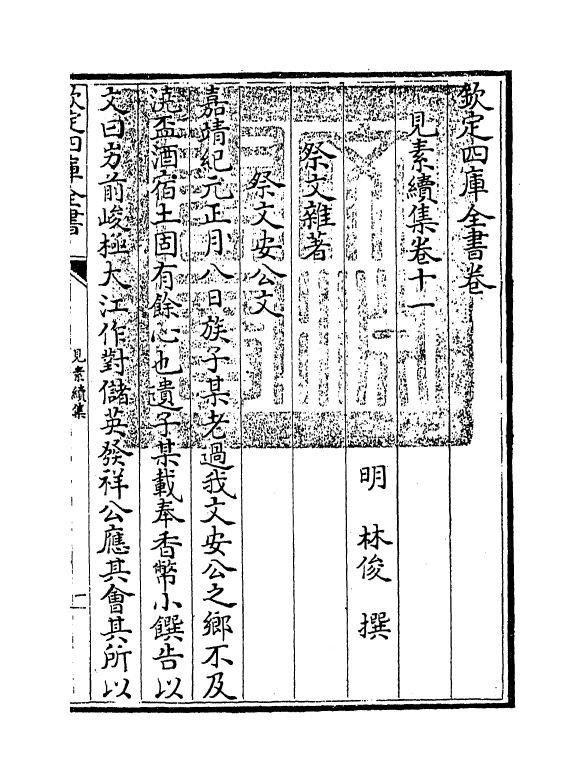 欽定四庫全書卷
見素續集卷十一
明 林俊 撰
祭文雜著
祭文安公文
嘉靖紀元正月八日族子某老過我文安公之鄉不及
澆盃酒宿土固有餘心也遺子某載奉香幣小饌告以
文曰岃前峻極大江作對儲英發祥公應其會其所以
欽定四庫全書
見素續集
一